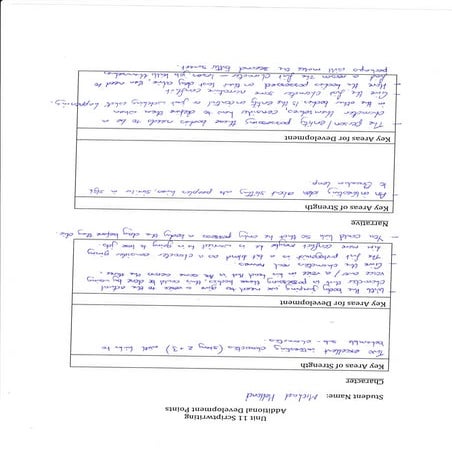 Unit 11 Scriptwriting
Additional Development Points
Student Name: Michael Holland
Character
Key Areas of Strength
Two excellent interesting characters (story 2 + 3) with links to
believable sub-characters.
Key Areas for Development
With the body jumping we need to give a voice to the actual
character that is possessing these bodies, this could be done by using
voice over / a voice in his head that is the same across the three.
Give the characters real names
The first protagonist is a bit bland as a character consider giving
him more conflict maybe he is worried he is going to lose job
- You could look at this he possess a body the day before they die.
Narrative
Key Areas of Strength
An interesting idea about shifting into peoples lives, similar in style
to Quantum Leap
Key Areas for Development
- The person/entity possessing these bodies needs to be a
character themselves, consider how to define them when
in the other bodies. Is the entity or just watching what happening.
- Give the first character some narrative conflict
- Have the bodies possessed on that last day alive, need to
find a reason the first character - loses job
perhaps will make the second better